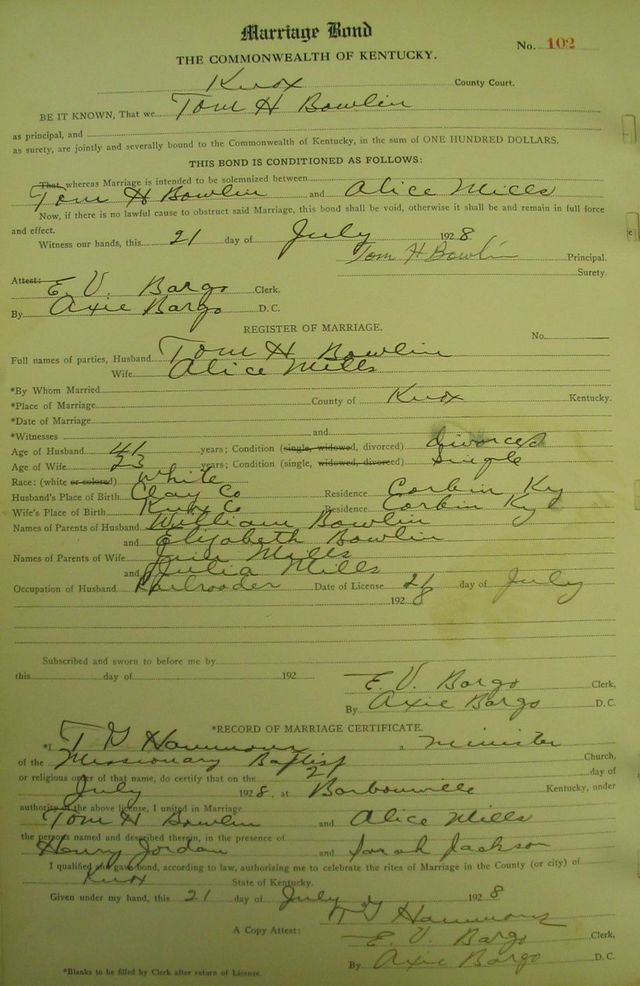 Marriage Bond
No. 102
THE COMMONWEALTH OF KENTUCKY.
Knox County Court.
BE IT KNOWN, That we Tom H Bowlin
as principal, and
as surety, are jointly and severally bound to the Commonwealth of Kentucky, in the sum of ONE HUNDRED DOLLARS.
THIS BOND IS CONDITIONED AS FOLLOWS:
That, whereas Marriage is intended to be solemnized between
Tom H Bowlin and Alice Mills
Now, if there is no lawful cause to obstruct said Marriage, this bond shall be void, otherwise it shall be and remain in full force
and effect.
Witness our hands, this 21 day of July 1928
Tom H Bowlin Principal.
Surety.
Attest: E. V. Bargo Clerk.
By Axie Bargo D. C.
REGISTER OF MARRIAGE.
No.
Full names of parties, Husband Tom H Bowlin
Wife Alice Mills
*By Whom Married
*Place of Marriage County of Knox Kentucky.
*Date of Marriage
*Witnesses and
Age of Husband 41 years; Condition (single, widowed, divorced) divorced
Age of Wife 23 years; Condition (single, widowed, divorced) Single
Race: (white or colored) White
Husband's Place of Birth Clay Co Residence Corbin Ky
Wife's Place of Birth Knox Co Residence Corbin Ky
Names of Parents of Husband William Bowlin
and Elizabeth Bowlin
Names of Parents of Wife Jim Mills
and Julia Mills
Occupation of Husband Railroader Date of License 21 day of July
1928
Subscribed and sworn to before me by
this day of 192
E. V. Bargo Clerk,
By Axie Bargo D. C.
*RECORD OF MARRIAGE CERTIFICATE.
*I T G Hammons a minister
of the Missionary Baptist Church,
or religious order of that name, do certify that on the 21 day of
July 1928, at Barbourville Kentucky, under
authority of the above license, I united in Marriage
Tom H Bowlin and Alice Mills
the persons named and described therein, in the presence of
Henry Jordan and Sarah Jackson
I qualified and gave bond, according to law, authorizing me to celebrate the rites of Marriage in the County (or city) of
Knox State of Kentucky.
Given under my hand, this 21 day of July 1928
T G Hammons
A Copy Attest: E. V. Bargo Clerk,
By Axie Bargo D. C.
*Blanks to be filled by Clerk after return of License.